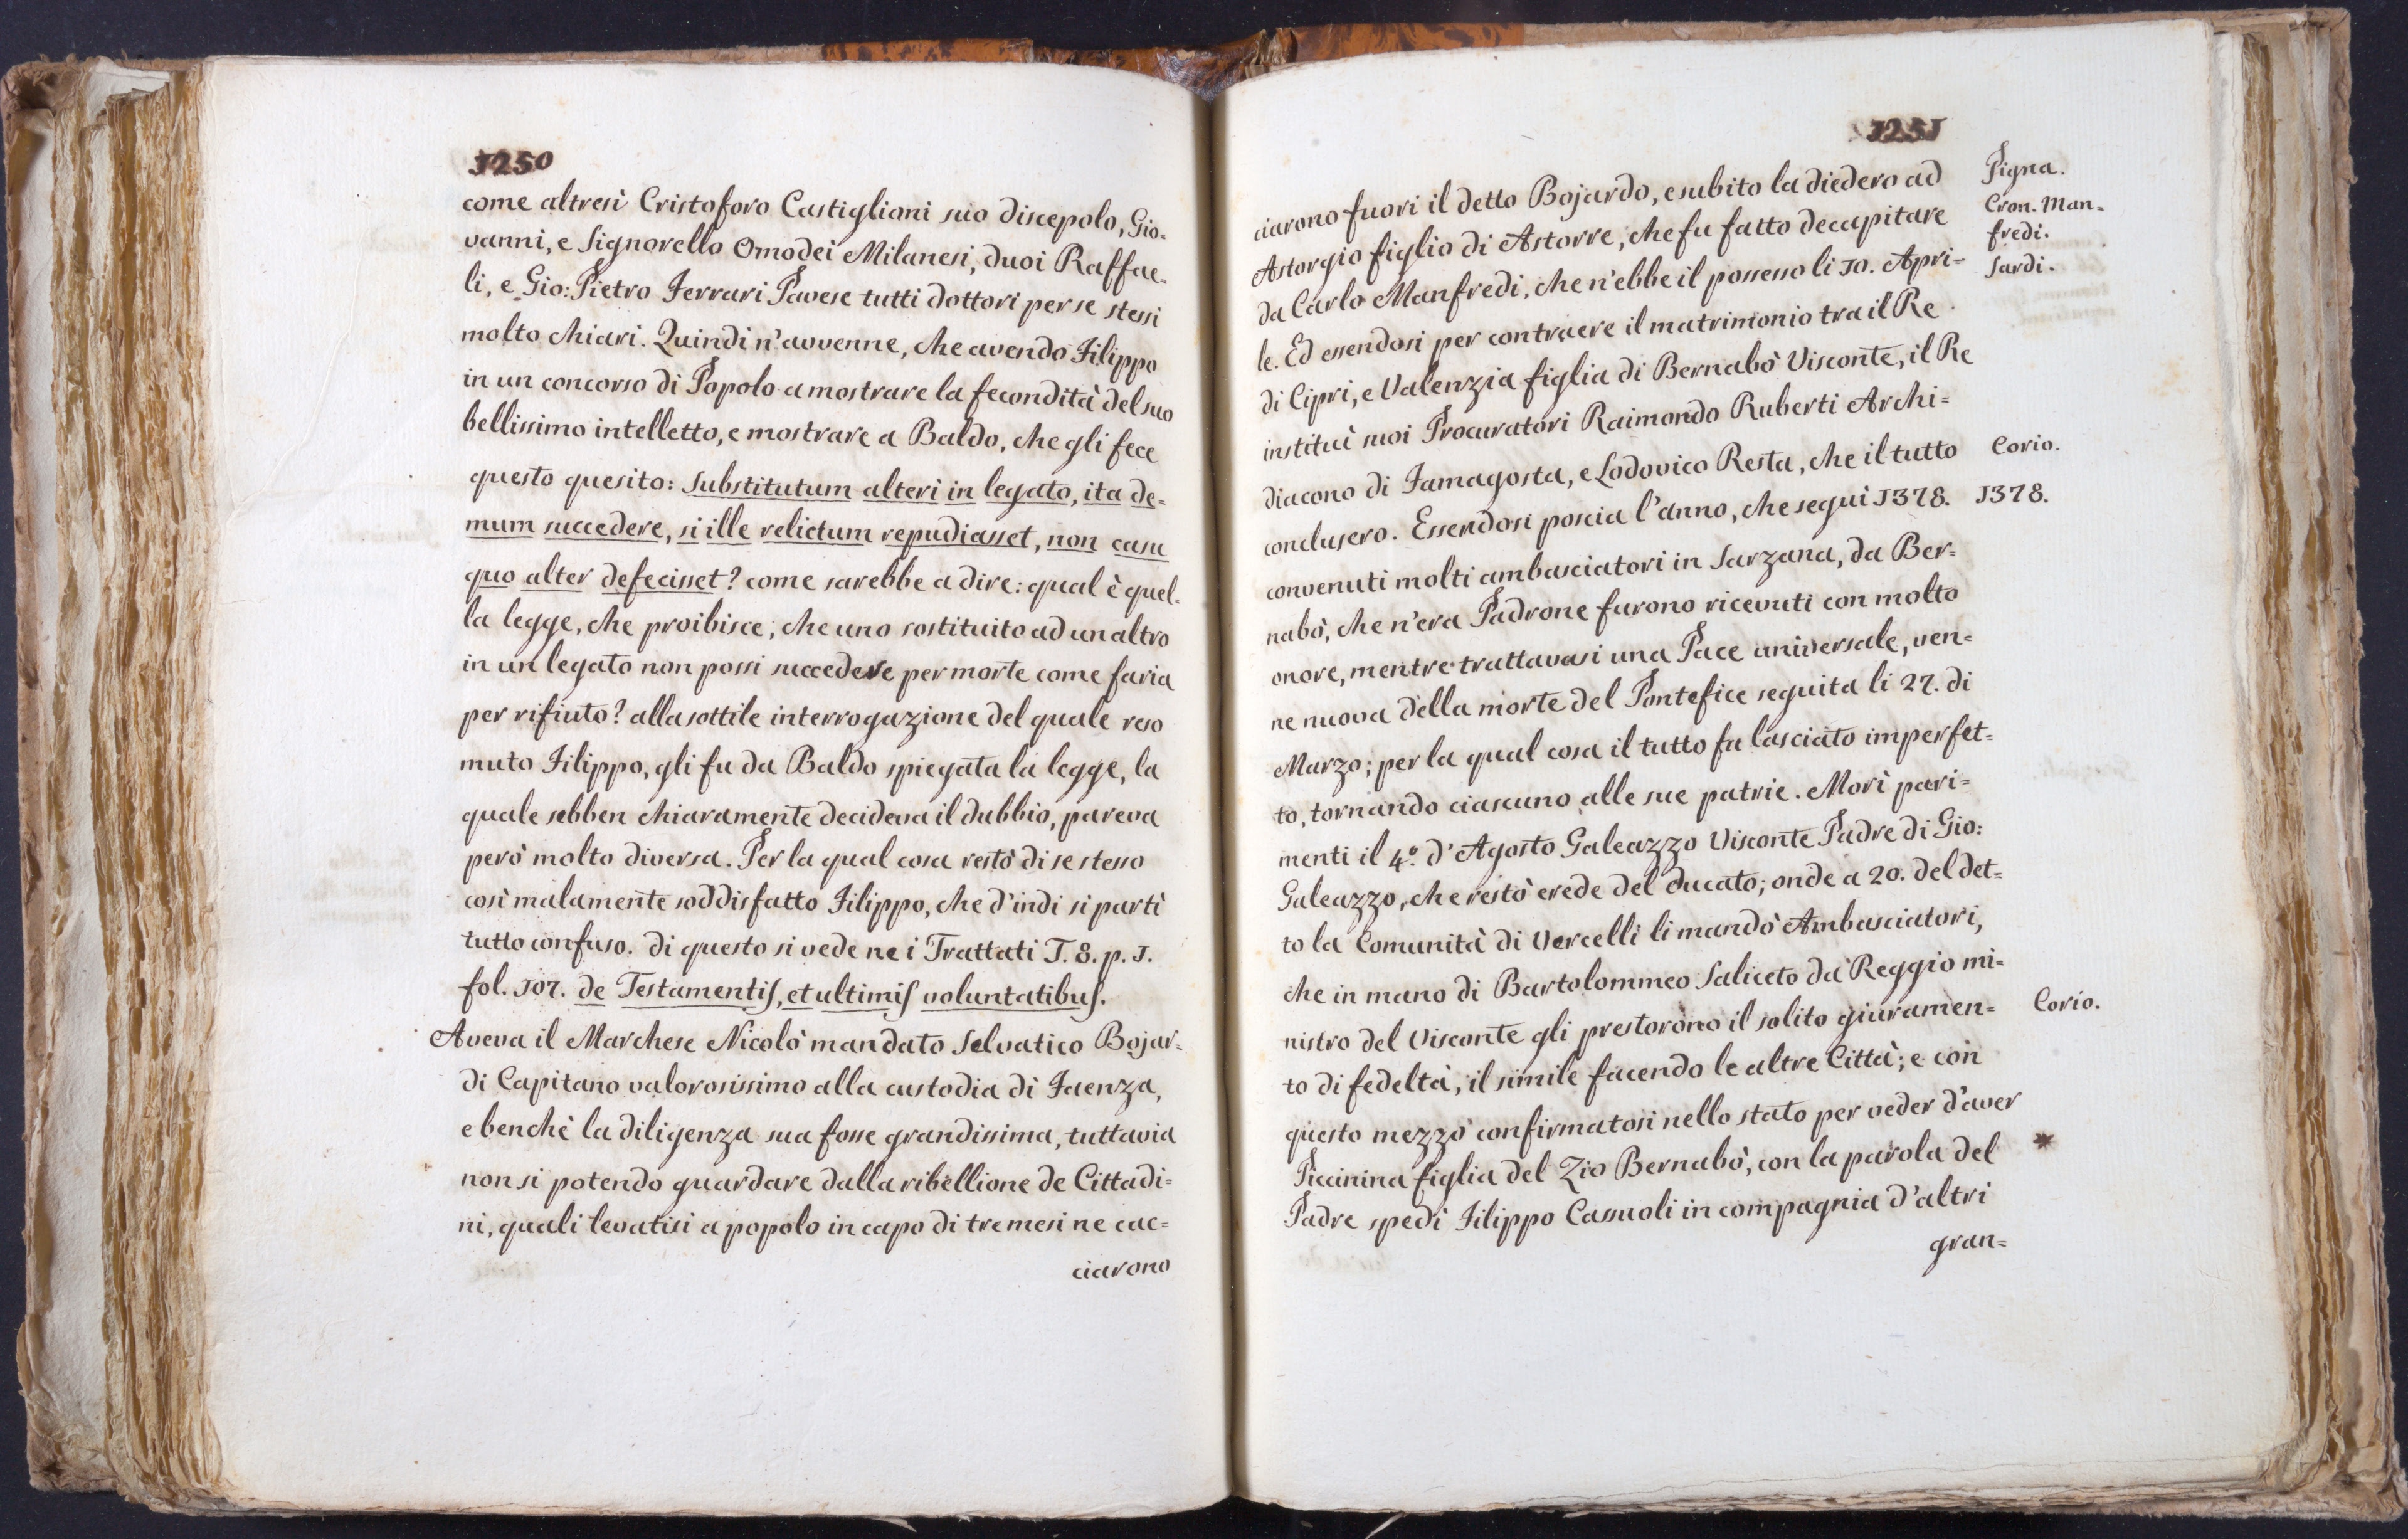 1250
come altresì Cristoforo Castiglioni suo discepolo, Gio-
vanni, e Signorello Omodei Milanesi, duoi Raffae-
li, e Gio: Pietro Ferrari Pavese tutti dottori per se stessi
molto chiari. Quindi n'avvenne, che avendo Filippo
in un concorso di Popolo a mostrare la fecondità del suo
bellissimo intelletto, e mostrare a Baldo, che gli fece
questo quesito: substitutum alteri in legato, ita de-
mum succedere, si ille relictum repudiasset, non casu
quo alter defecisset? come sarebbe a dire: qual è quel-
la legge, che proibisce, che uno sostituito ad un altro
in un legato non possi succedere per morte come faria
per rifiuto? alla sottile interrogazione del quale reso
muto Filippo, gli fu da Baldo spiegata la legge, la
quale sebben chiaramente decideva il dubbio, pareva
però molto diversa. Per la qual cosa restò di se stesso
così malamente soddisfatto Filippo, che d'indi si partì
tutto confuso. di questo si vede ne i Trattati T. 8. p. 1.
fol. 107. de Testamentis, et ultimis voluntatibus.
Aveva il Marchese Nicolò mandato Selvatico Bojar-
di Capitano valorosissimo alla custodia di Faenza,
e benchè la diligenza sua fosse grandissima, tuttavia
non si potendo guardare dalla ribellione de Cittadi=
ni, quali levatisi a popolo in capo di tre mesi ne cac=
ciarono
1251
ciarono fuori il detto Bojardo, e subito la diedero ad
Astorgio figlio di Astorre, che fu fatto decapitare
da Carlo Manfredi, che n'ebbe il possesso li 10. Apri=
le. Ed essendosi per contraere il matrimonio tra il Re
di Cipri, e Valenzia figlia di Bernabò Visconte, il Re
instituì suoi Procuratori Raimondo Ruberti Archi=
diacono di Famagosta, e Lodovico Resta, che il tutto
conclusero. Essendosi poscia l'anno, che seguì 1378.
convenuti molti ambasciatori in Sarzana, da Ber=
nabò, che n'era Padrone furono ricevuti con molto
onore, mentre trattavasi una Pace universale, ven=
ne nuova della morte del Pontefice seguita li 27. di
Marzo; per la qual cosa il tutto fu lasciato imperfet=
to, tornando ciascuno alle sue patrie. Morì pari=
menti il 4.º d'Agosto Galeazzo Visconte Padre di Gio:
Galeazzo, che restò erede del ducato; onde a 20. del det=
to la Comunità di Vercelli li mandò Ambasciatori,
che in mano di Bartolommeo Saliceto da Reggio mi=
nistro del Visconte gli prestorono il solito giuramen=
to di fedeltà, il simile facendo le altre Città; e con
questo mezzo confirmatosi nello stato per veder d'aver
Piccinina figlia del Zio Bernabò, con la parola del
Padre spedì Filippo Cassuoli in compagnia d'altri
gran=
Pigna.
Cron. Man=
fredi.
Sardi.
Corio.
1378.
Corio.
*